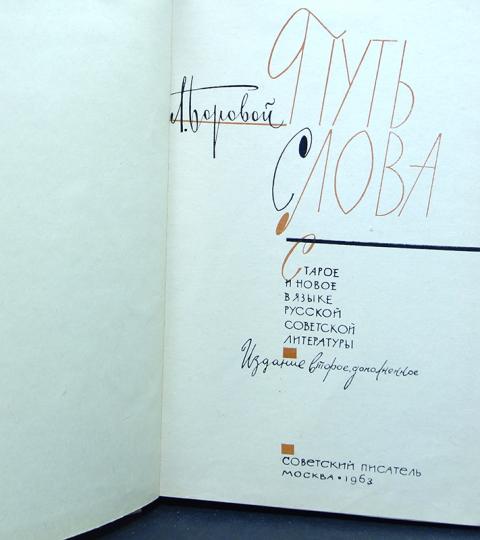 Л. Боровой
ПУТЬ
СЛОВА
СТАРОЕ
И НОВОЕ
В ЯЗЫКЕ
РУССКОЙ
СОВЕТСКОЙ
ЛИТЕРАТУРЫ
Издание второе, дополненное
СОВЕТСКИЙ ПИСАТЕЛЬ
МОСКВА • 1963